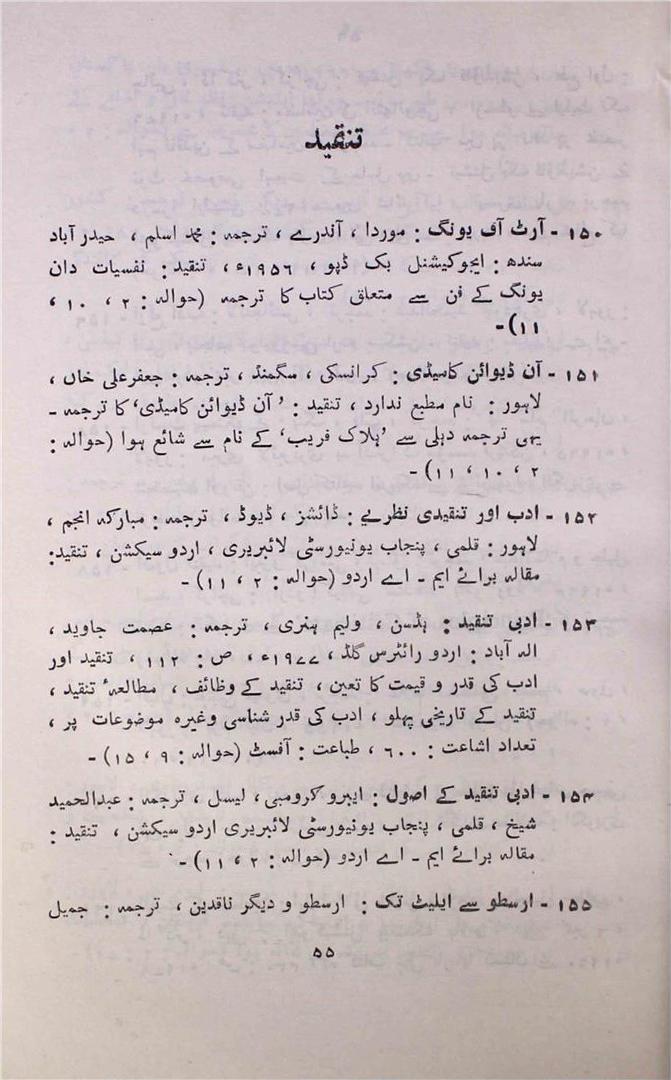 تنقید
۱۵۰ - آرٹ آف یونگ : موردا ، آندرے ، ترجمہ : محمد اسلم ، حیدر آباد
سندھ : ایجوکیشنل بک ڈپو ، ۱۹۵۶ء ، تنقید : نفسیات دان
یونگ کے فن سے متعلق کتاب کا ترجمہ (حوالہ : ۲ ، ۱۰ ،
۱۱) -
۱۵۱ - آن ڈیوائن کامیڈی : کرانسکی ، سگمنڈ ، ترجمہ : جعفر علی خاں ،
لاہور : نام مطبع ندارد ، تنقید : ’آن ڈیوائن کامیڈی‘ کا ترجمہ -
یہی ترجمہ دہلی سے ’ہلاک فریب‘ کے نام سے شائع ہوا (حوالہ :
۲ ، ۱۰ ، ۱۱) -
۱۵۲ - ادب اور تنقیدی نظریے : ڈائشز ، ڈیوڈ ، ترجمہ : مبارکہ انجم ،
لاہور : قلمی ، پنجاب یونیورسٹی لائبریری ، اردو سیکشن ، تنقید :
مقالہ برائے ایم - اے اردو (حوالہ : ۲ ، ۱۱) -
۱۵۳ - ادبی تنقید : ہڈسن ، ولیم ہنری ، ترجمہ : عصمت جاوید ،
الہ آباد : اردو رائٹرس گلڈ ، ۱۹۷۷ء ، ص : ۱۱۲ ، تنقید اور
ادب کی قدر و قیمت کا تعین ، تنقید کے وظائف ، مطالعۂ تنقید ،
تنقید کے تاریخی پہلو ، ادب کی قدر شناسی وغیرہ موضوعات پر ،
تعداد اشاعت : ۶۰۰ ، طباعت : آفسٹ (حوالہ : ۹ ، ۱۵) -
۱۵۴ - ادبی تنقید کے اصول : ایبرو کرومبی ، لیسل ، ترجمہ : عبدالحمید
شیخ ، قلمی ، پنجاب یونیورسٹی لائبریری اردو سیکشن ، تنقید :
مقالہ برائے ایم - اے اردو (حوالہ : ۲ ، ۱۱) -
۱۵۵ - ارسطو سے ایلیٹ تک : ارسطو و دیگر ناقدین ، ترجمہ : جمیل
۵۵